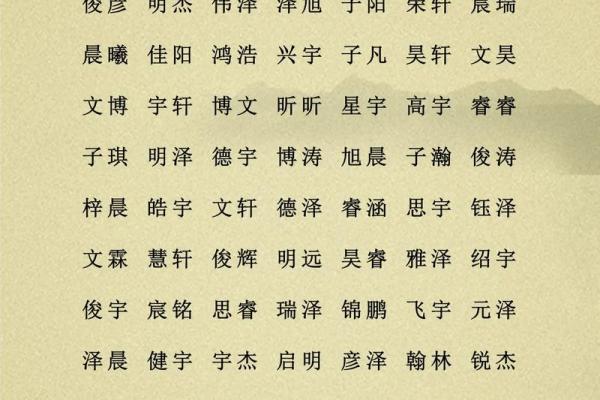 俊彦 明杰 伟泽 泽旭 子阳 荣轩 晨瑞
晨曦 佳阳 鸿浩 兴宇 子凡 昊轩 文昊
文博 宇轩 博文 昕昕 星宇 高宇 睿睿
子琪 明泽 德宇 博涛 旭晨 子瀚 俊涛
梓晨 皓宇 文轩 德泽 睿涵 思宇 钰泽
文霖 慧轩 俊辉 明远 昊睿 雅泽 绍宇
俊宇 宸铭 思睿 瑞泽 锦鹏 飞宇 元泽
泽晨 健宇 宇杰 启明 彦泽 翰林 锐杰